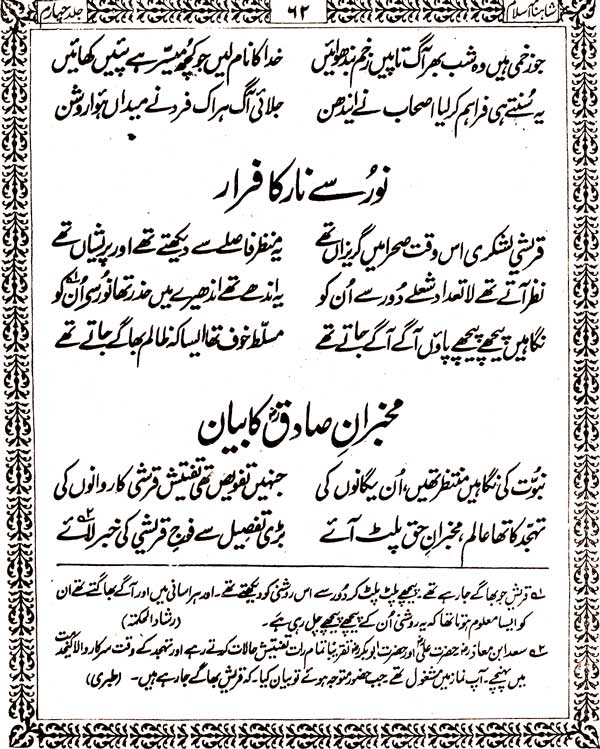 شاہنامۂ اسلام ۶۲ جلد چہارم
جو زخمی ہیں وہ شب بھر آگ تاپیں زخم بندھوائیں خدا کا نام لیں جو کچھ میسر ہے پئیں کھائیں
یہ سُنتے ہی فراہم کر لیا اصحاب نے ایندھن جلائی آگ ہر اک فرد نے میداں ہوا روشن
نورُ سے نار کا فرار
قریشی لشکری اس وقت صحرا میں گریزاں تھے یہ منظر فاصلے سے دیکھتے تھے اور پریشاں تھے
نظر آتے تھے لا تعداد شعلے دُور سے اُن کو یہ اندھے تھے اندھیرے میں حذر تھا نُور سی اُن کو ۱؎
نگاہیں پیچھے پیچھے پاؤں آگے آگے جاتے تھے مسلّط خوف تھا ایسا کہ ظالم بھاگے جاتے تھے
مخبرانِ صادقؐ کا بیان
نبوّت کی نگاہیں منتظر تھیں، اُن یگانوں کی جنہیں تفویض تھی تفتیش قرشی کاروانوں کی
تہجّد کا تھا عالم مخبرانِ حق پلٹ آئے بڑی تفصیل سے فوجِ قریشی کی خبر لائے ۲؎
۱؎ قریش جو بھاگے جا رہے تھے۔ پیچھے پلٹ پلٹ کر دُور سے اس روشنی کو دیکھتے تھے۔ اور ہراسانی میں اور آگے بھاگتے تھے ان
کو ایسا معلوم ہوتا تھا کہ یہ روشنی اُن کے پیچھے پیچھے چل رہی ہے۔ (رشاد الحکمۃ)
۲؎ سعد ابن معاذ رضہ حضرت علیؓ اور حضرت ابوبکر رضہ تقریباً تمام رات تفتیش حالات کرتے رہے اور تہجد کے وقت سرکار والا کی خدمت
میں پہنچے۔ آپ نماز میں مشغول تھے جب حضور متوجہ ہوئے تو بیان کیا۔ کہ قریش بھاگے جا رہے ہیں۔ (طبری)